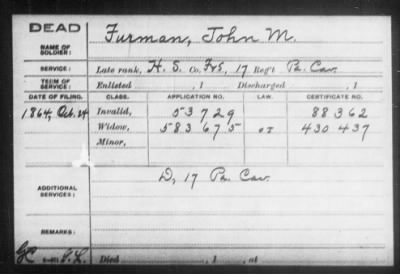 DEAD
NAME OF SOLDIER: Furman, John M.
SERVICE: Late rank, H. S. Co. F&S, 17 Reg't Pa. Cav.
TERM OF SERVICE: Enlisted , 1 Discharged , 1
DATE OF FILING. CLASS. APPLICATION NO. LAW. CERTIFICATE NO.
1864, Oct. 24 Invalid, 53729 88362
Widow, 583675 430437
Minor,
ADDITIONAL SERVICES: D, 17 Pa. Cav.
REMARKS:
Died , 1 , at